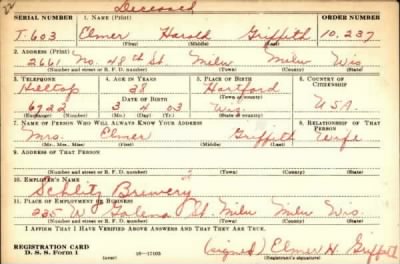 Deceased
SERIAL NUMBER 1. NAME (Print) ORDER NUMBER
T-603 Elmer Harold Griffith 10,237
(First) (Middle) (Last)
2. ADDRESS (Print)
2661 No. 48th St Milw Milw Wis.
(Number and street or R. F. D. number) (Town) (County) (State)
3. TELEPHONE 4. AGE IN YEARS 5. PLACE OF BIRTH 6. COUNTRY OF CITIZENSHIP
Hilltop 38 Hartford
DATE OF BIRTH (Town or county)
6922 3 4 03 Wis. USA.
(Mo.) (Day) (Yr.) (State or country)
7. NAME OF PERSON WHO WILL ALWAYS KNOW YOUR ADDRESS 8. RELATIONSHIP OF THAT PERSON
Mrs. Elmer Griffith Wife
(Mr., Mrs., Miss) (First) (Middle) (Last)
9. ADDRESS OF THAT PERSON
(Number and street or R. F. D. number) (Town) (County) (State)
10. EMPLOYER'S NAME
Schlitz Brewery
11. PLACE OF EMPLOYMENT OR BUSINESS
235 W Galena St. Milw Milw Wis.
(Number and street or R. F. D. number) (Town) (County) (State)
I AFFIRM THAT I HAVE VERIFIED ABOVE ANSWERS AND THAT THEY ARE TRUE.
REGISTRATION CARD
D. S. S. Form 1 (over) 16—17105 (signed) Elmer H. Griffith
(Registrant's signature)